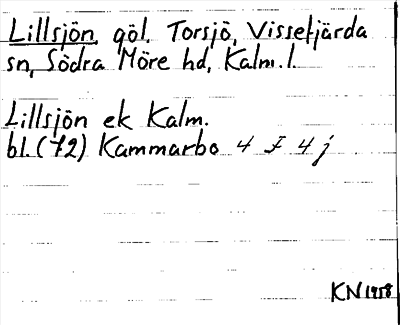 Lillsjön, göl, Torsjö, Vissefjärda
sn, Södra Möre hd, Kalm. l.
Lillsjön ek Kalm.
bl. (72) Kammarbo 4 F 4 j
KN 1958